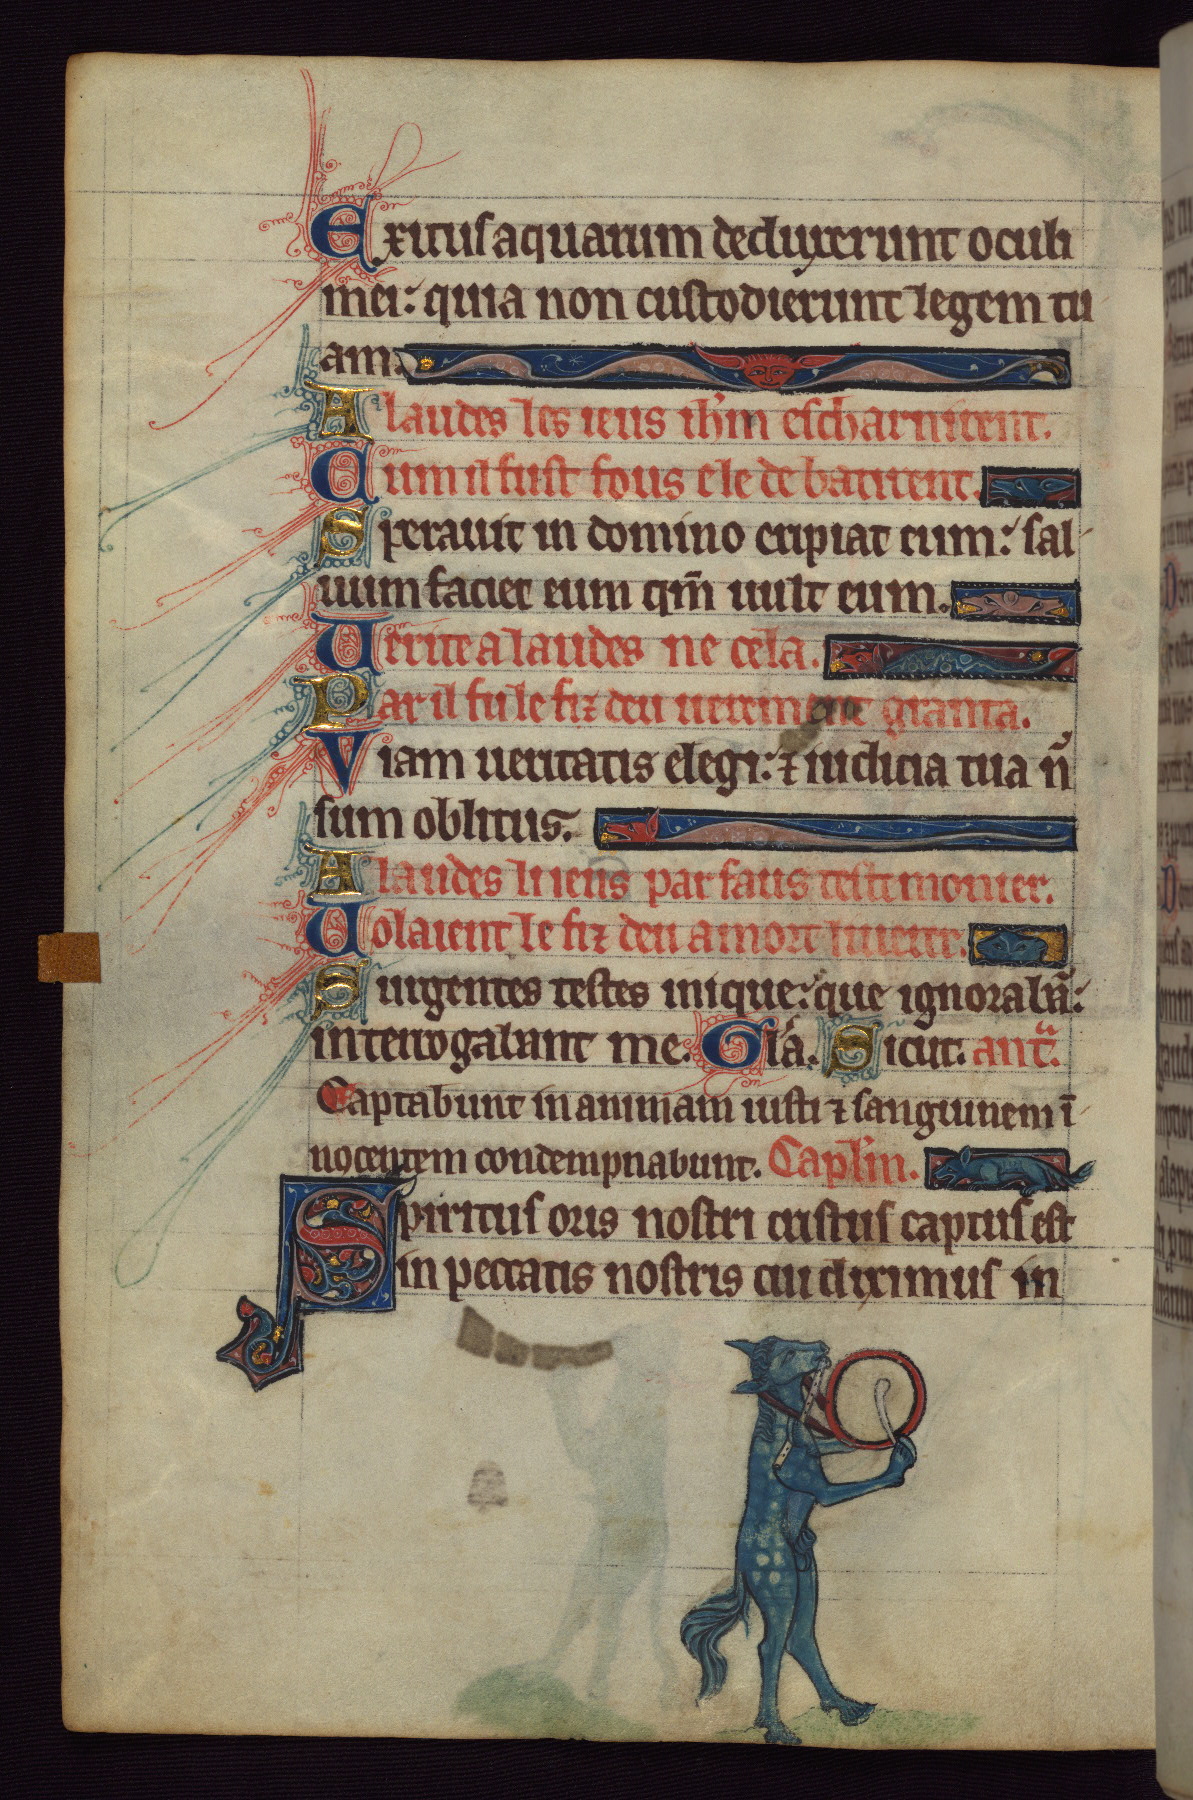 Exitus aquarum deduxerunt oculi
mei: quia non custodierunt legem tu
am.
A laudes les ieus ih'm escharnirent.
Cum il fust fous e le de batirent.
Sperauit in domino eripiat eum: sal
uum faciet eum qm̃ uult eum.
Uerite a laudes ne cela.
Par il fu le fiz deu uerement granta.
Viam ueritatis elegi: ⁊ iudicia tua ñ
sum oblitus.
A laudes li ieus par faus testimonier.
Uolaient le fiz deu a mort
Surgentes testes inique: que ignorabã:
interrogabant me. Glã. Sicut. ant̃.
Captabunt in animam iusti ⁊ sanguinem ĩ
nocentem condempnabunt. Capl'm.
Spiritus oris nostri cristus captus est
in peccatis nostris cui diximus in